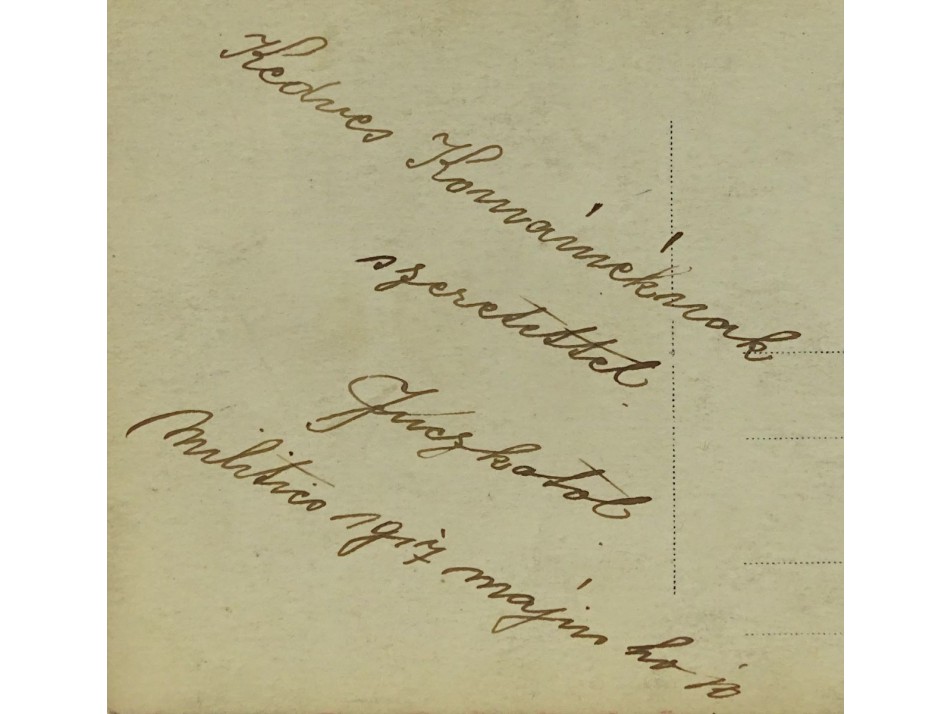 Kedves Komáméknak
szeretettel
Juczkatol
Militics 1917 május ho 10